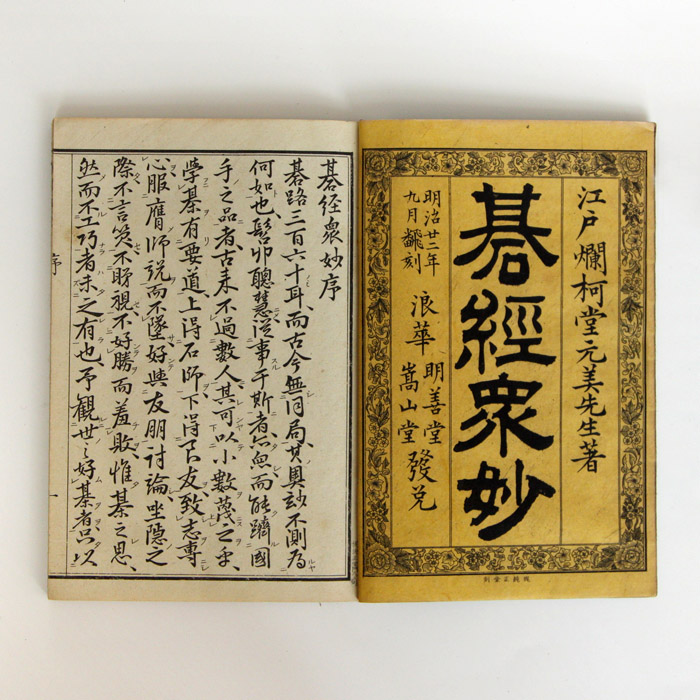 江戸爛柯堂元美先生著
碁經衆妙
明治廿二年
九月飜刻
浪華
明善堂
嵩山堂
發兌
碁經衆妙序
碁路三百六十耳、而古今無同局、其奥玅不測為
何如也、髫丱聰慧從事于斯者亦無、而能躋國
手之品者、古来不過數人、其可以小數蔑之乎、
學碁有要道、上得石師、下得良友、致志専
心、服膺師説而不墜、好與友朋討論、坐隠之
際、不言笑、不睇視、不好勝而羞敗、惟碁之思、
然而不工巧者、未之有也、予観世之好碁者、只以
序
一